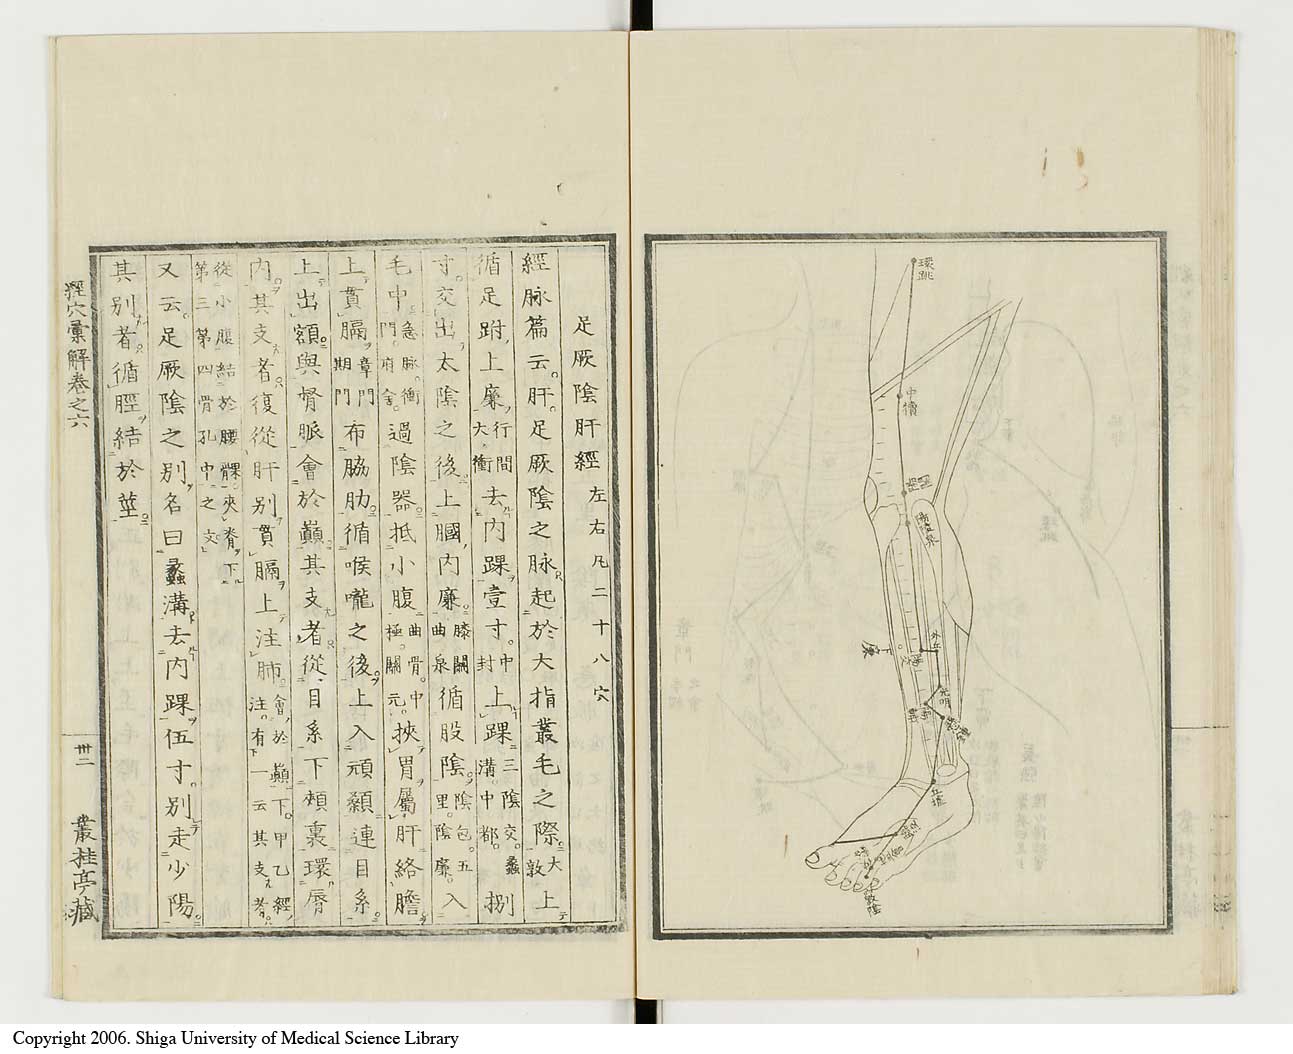 環跳
中瀆
陽陵泉
外丘
陽交
下廉
光明
陽輔
懸鐘
丘墟
竅陰
足厥陰肝經左右凡二十八穴
經脉篇云。肝。足厥陰之脉起於大指叢毛之際。大敦上
循足跗上廉行間大衝去内踝壹寸。中封上踝三陰交。蠡溝。中都。捌
寸。交出太陰之後上膕内廉。膝關曲泉循股陰。陰包。五里。陰廉。入
毛中急脉。衝門。府舍。過陰器抵小腹曲骨。中極。關元。挾胃屬肝絡膽
上貫膈章門期門布脇肋。循喉嚨之後。上入頏顙連目系
上出額與督脈會於巔其支者從目系下頰裏環脣
内。其支者。復從肝別貫膈上注肺。會於巔下。甲乙經注。有一云其支者。
從小腹結於腰髁。夾脊下第三第四骨孔中之文
又云。足厥陰之別。名曰蠡溝去内踝伍寸。別走少陽。
其別者。循脛結於莖。
經穴彙解卷之六
卅二
叢桂亭藏
Copyright 2006. Shiga University of Medical Science Library